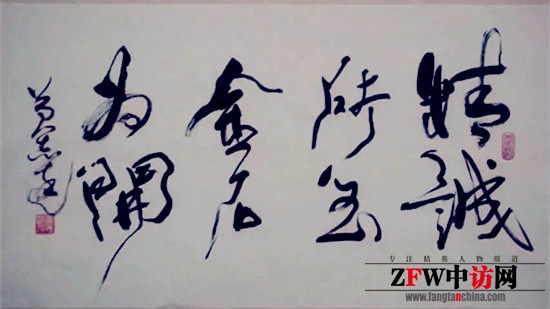 精誠
所至
金石
为開
专注精英人物报道
ZFW中访网
www.fangtanchina.com